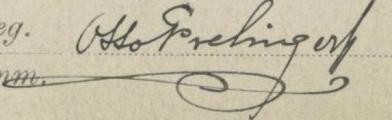 eg.
Otto Prelinger
mm.